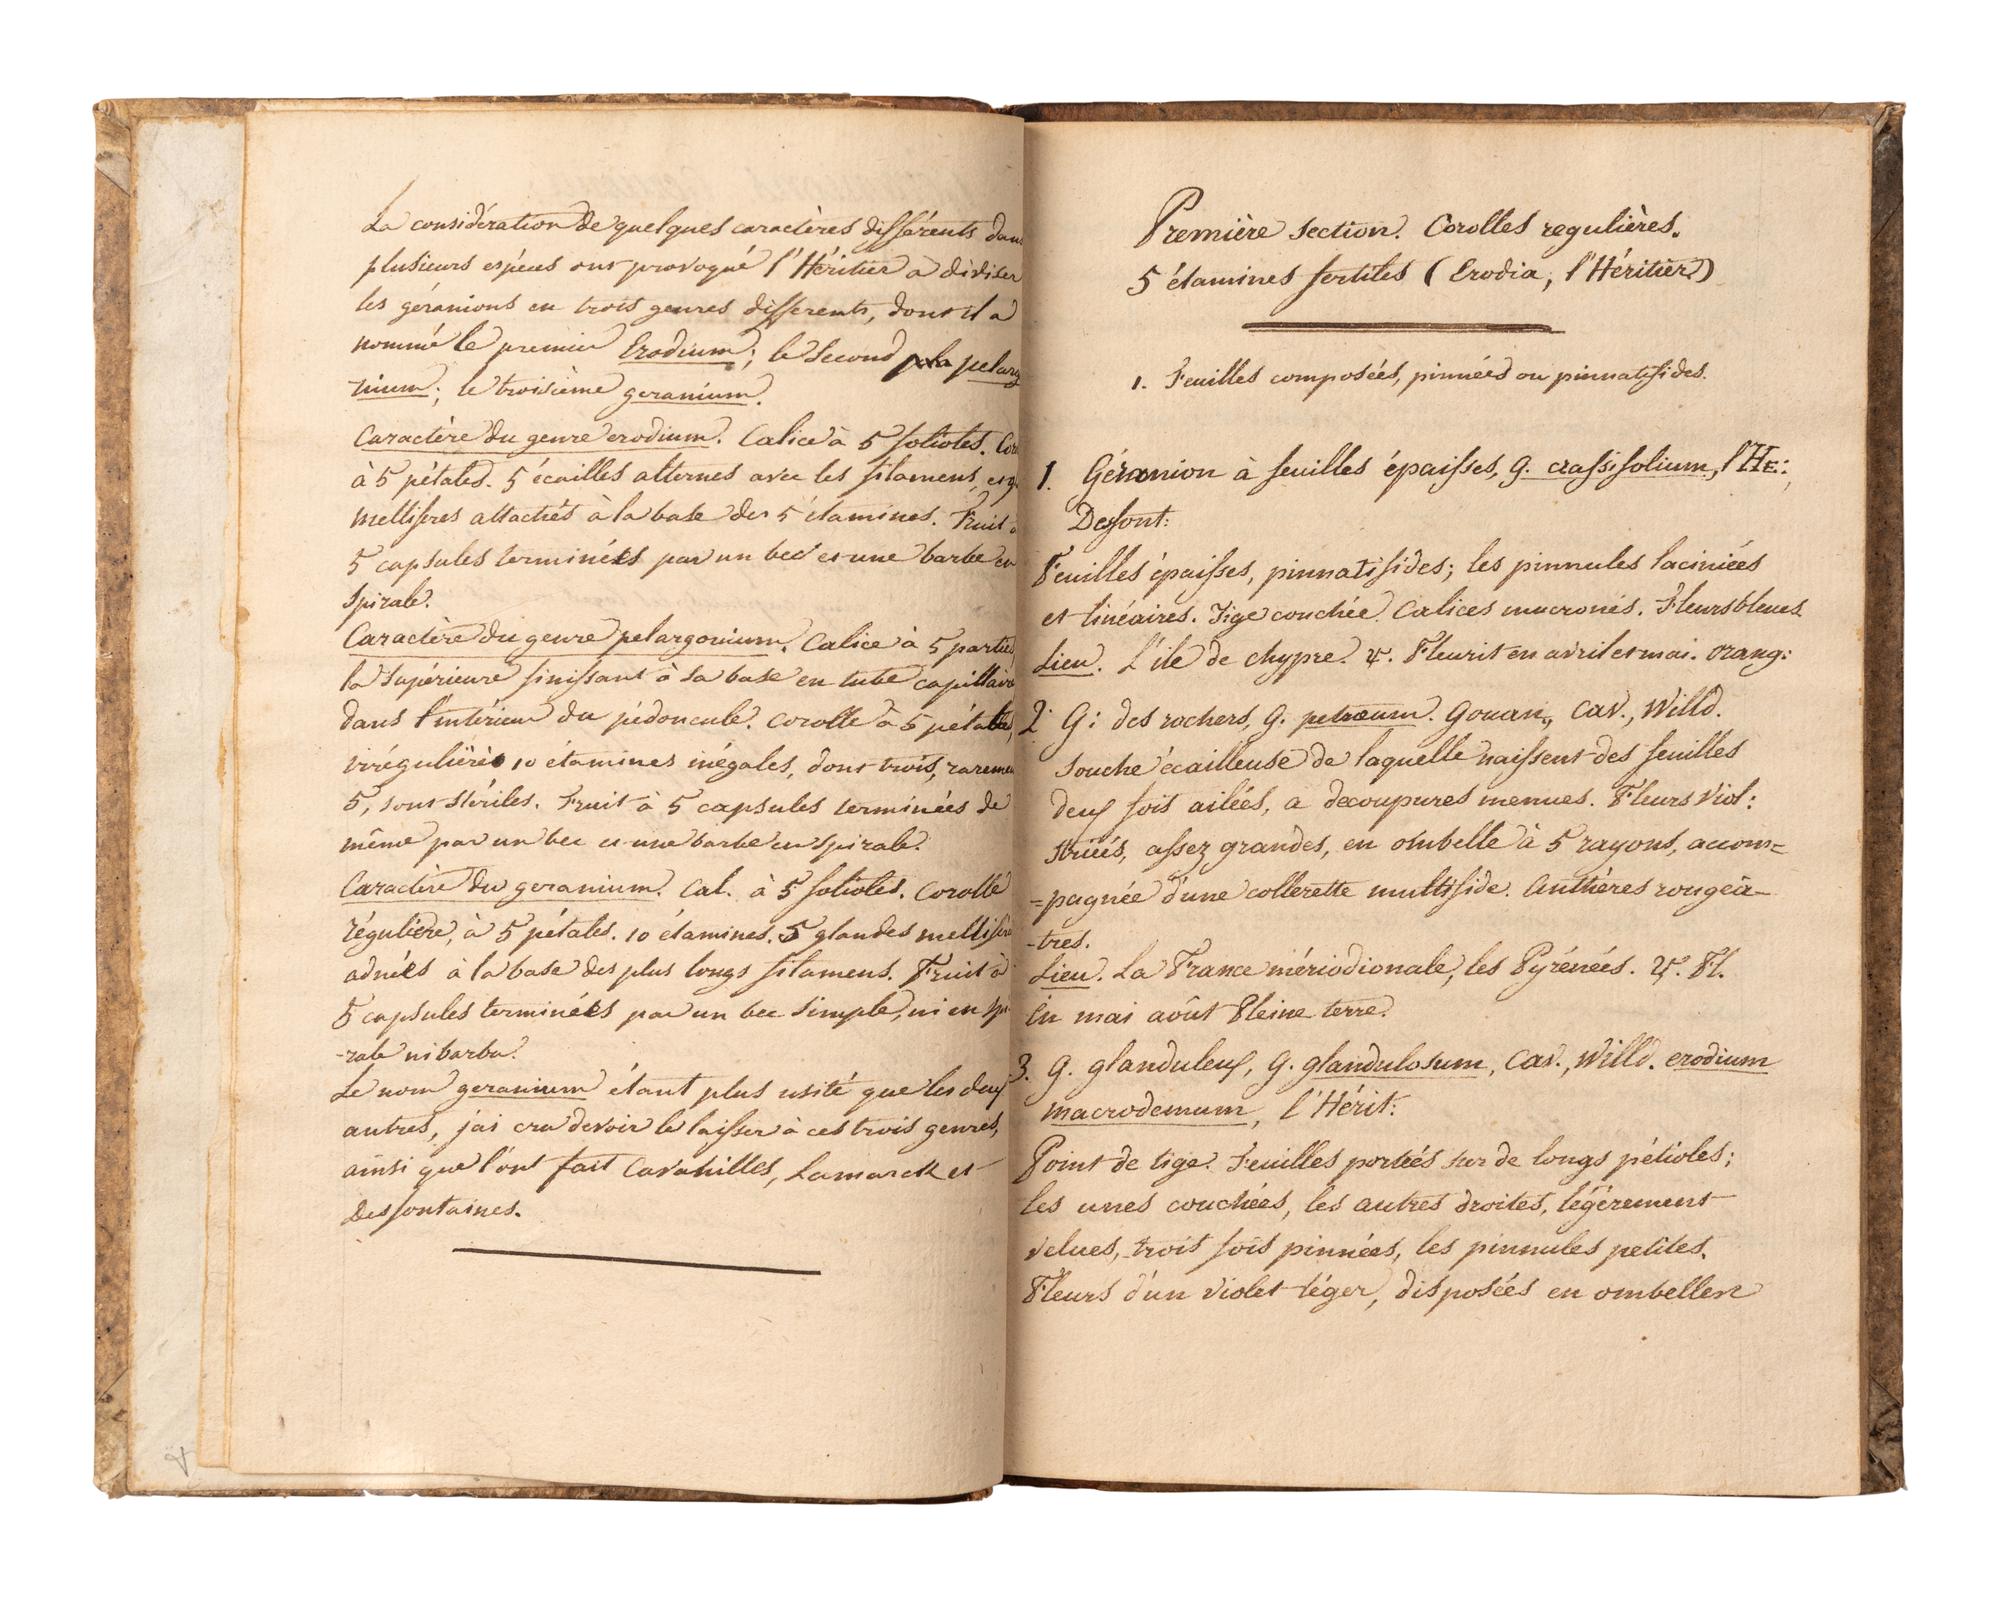 La considération de quelques caractères différents dans
plusieurs espéces ont provoqué l'Héritier à diviser
les géranions en trois genres differents, dont il a
nommé le premier Erodium; le second pelarg
nium; le troisième geranium.
Caractère du genre erodium. Calice à 5 folioles. Cor
à 5 pétales. 5 écailles alternes avec les filamens, et g
melliferes attachés à la base des 5 étamines. Fruit à
5 capsules terminées par un bec et une barbe en
spirale.
Caractère du genre pelargonium. Calice à 5 parties
la supérieure finissant à sa base en tube capillaire
dans l'intérieur du pédoncule. Corolle à 5 pétales,
irrégulière 10 étamines inégales, dont trois, raremen
5, sont stériles. Fruit à 5 capsules terminées de
même par un bec et une barbe en spirale.
Caractère du geranium. Cal. à 5 folioles. Corolle
régulière, à 5 pétales. 10 étamines. 5 glandes mellifèr
adnées à la base des plus longs filamens. Fruit à
5 capsules terminées par un bec simple, ni en spi-
-rale ni barbu.
Le nom geranium étant plus usité que les deux
autres, j'ai cru devoir le laisser à ces trois genres,
ainsi que l'ont fait Cavanilles, Lamarck et
Desfontaines.
Première section. Corolles regulières.
5 étamines fertiles (Erodia, l'Héritier)
1. Feuilles composées, pinnées ou pinnatifides.
1. Géranion à feuilles épaisses, G. crassifolium, l'HE:,
Desfont:
Feuilles épaisses, pinnatifides; les pinnules laciniées
et linéaires. Tige couchée. Calices mucronés. Fleurs bleues
Lieu. L'ile de chypre. ♃. Fleurit en avril et mai. Orang:
2. G: des rochers, G. petræum. Gouan., Cav., Willd.
Souche écailleuse de laquelle naissent des feuilles
deux fois ailées, a decoupures menues. Fleurs viol:
striées, assez grandes, en ombelle à 5 rayons, accom=
=pagnée d'une collerette multifide. Anthères rougeâ-
-tres.
Lieu. La France mériodionale, les Pyrénées. ♃. Fl.
En mai août Pleine terre.
3. G. glanduleux, G. glandulosum, Cav., Willd. erodium
macrodemum, l'Hérit:
Point de tige. Feuilles portées sur de longs pétioles;
les unes couchées, les autres droites, légérement
velues, trois fois pinnées, les pinnules petites.
Fleurs d'un violet léger, disposées en ombelle